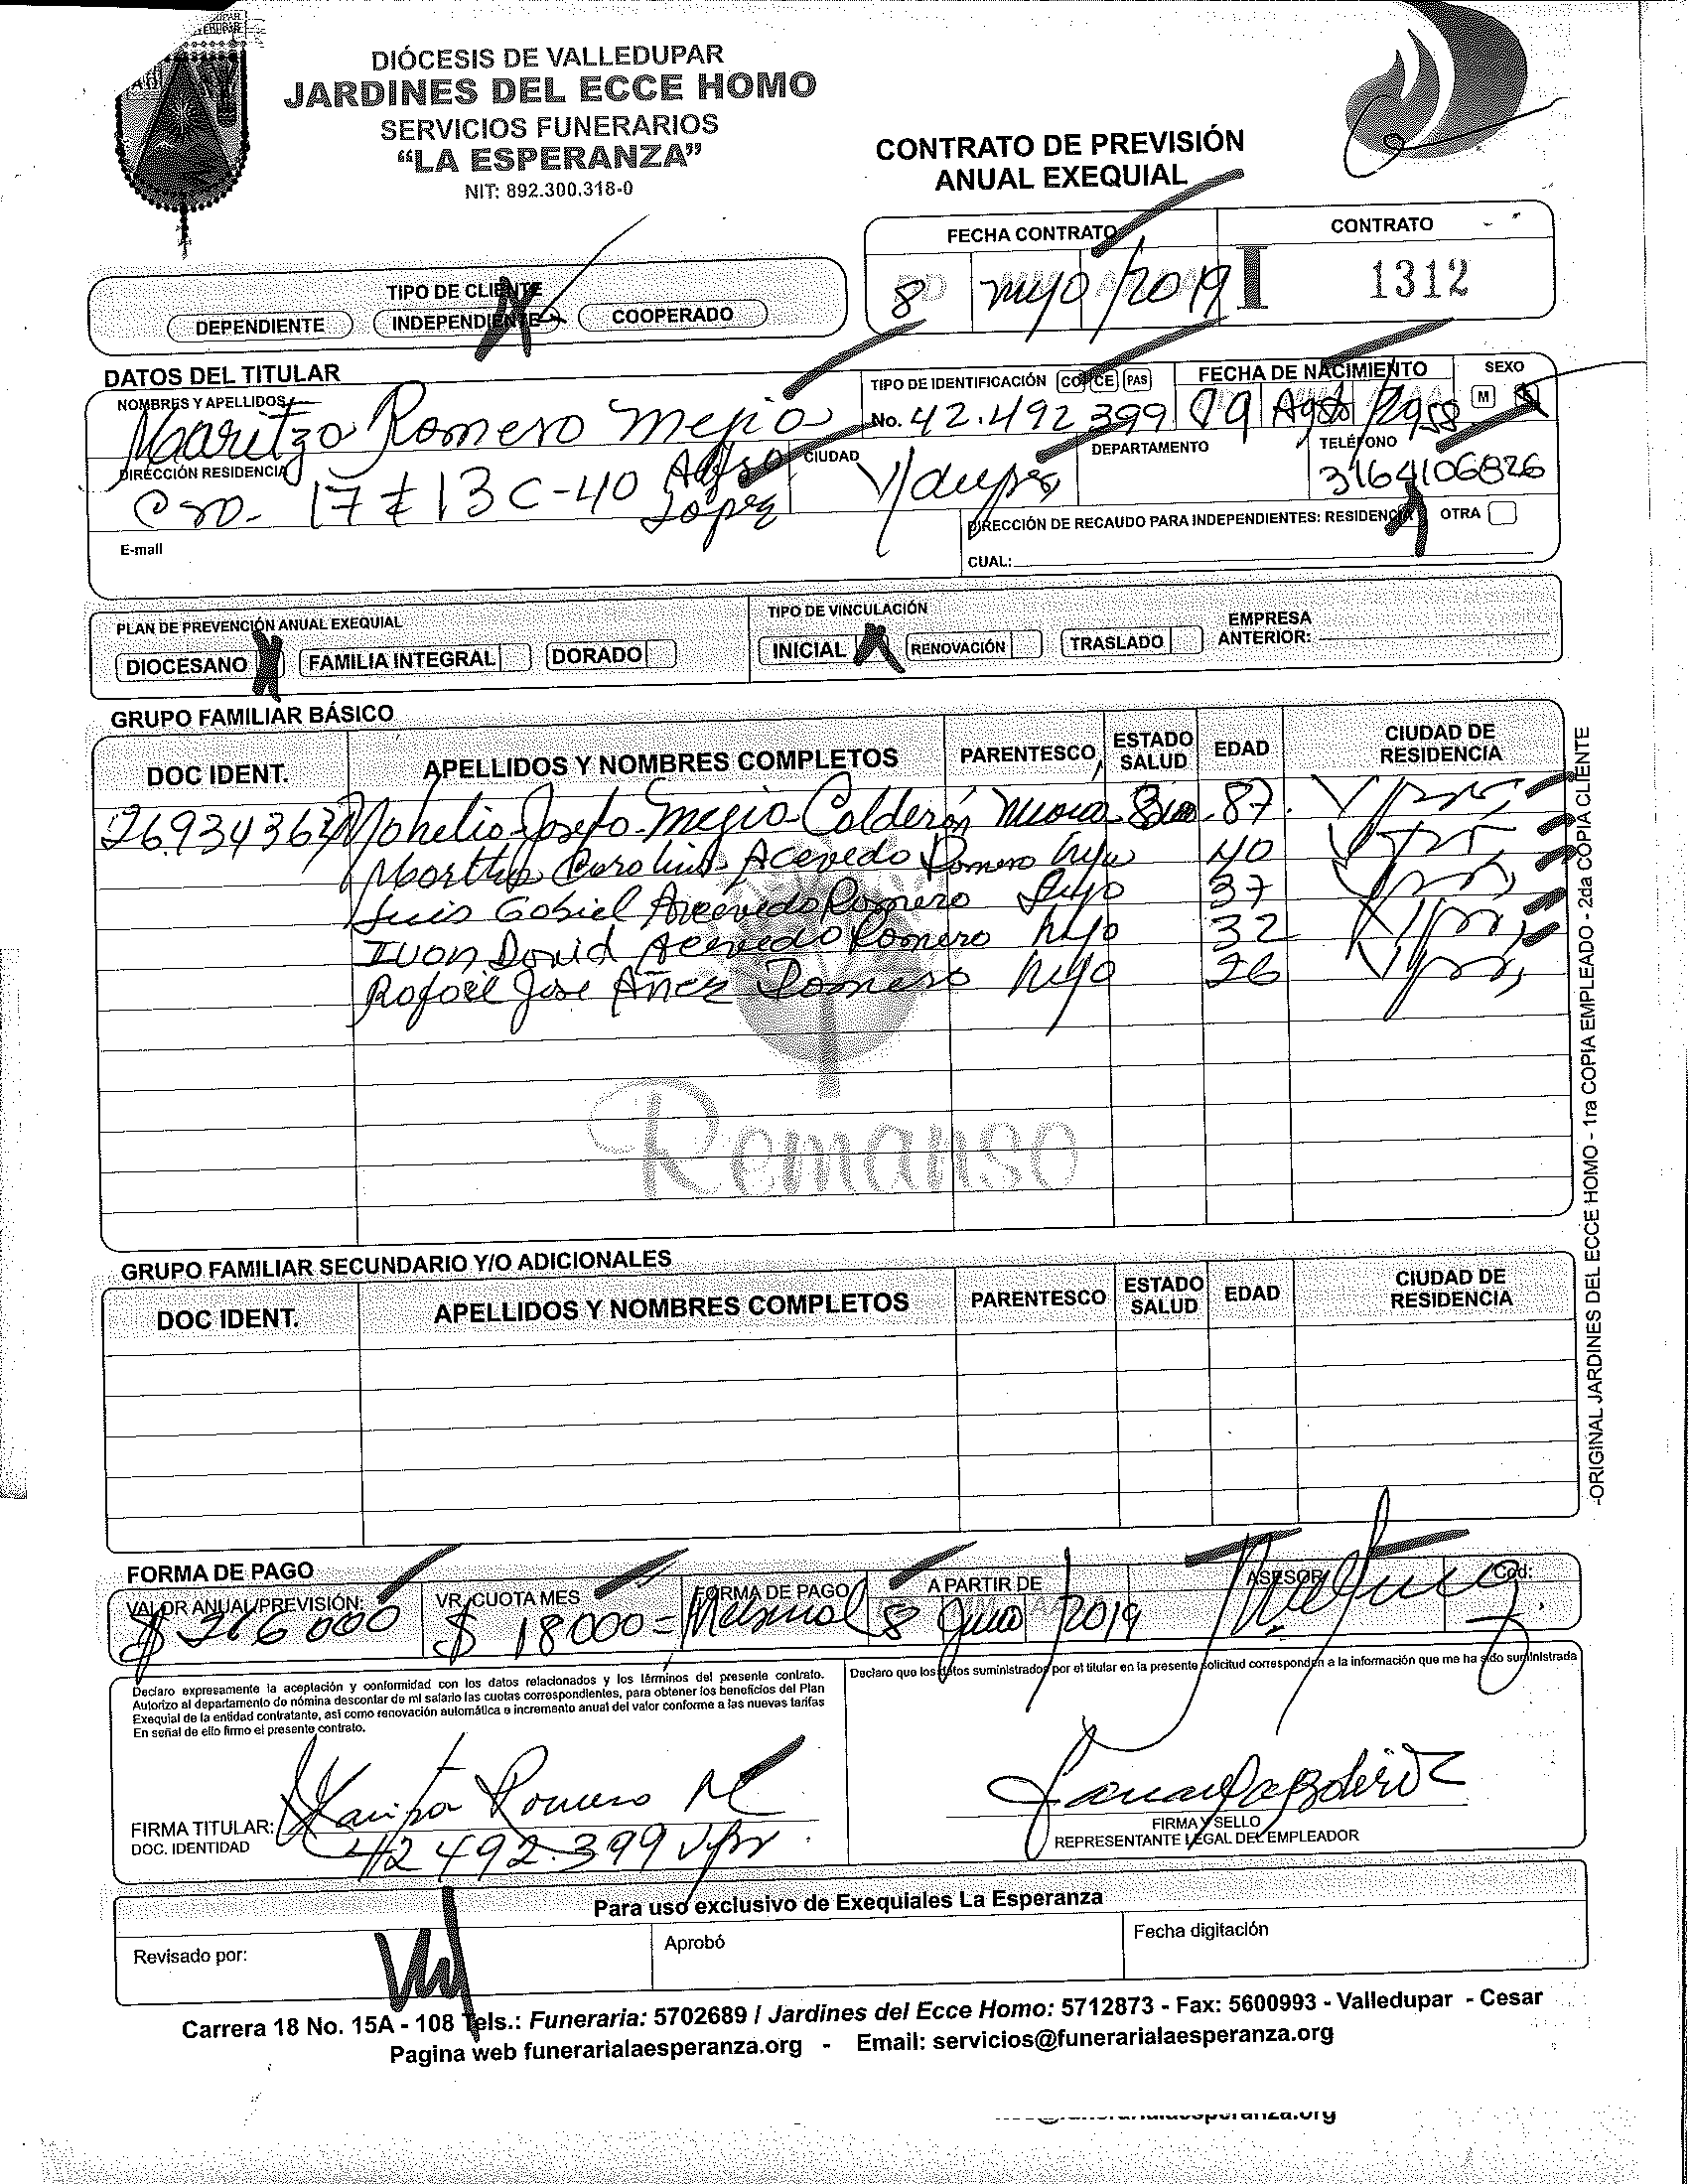 DIÓCESIS DE VALLEDUPAR
JARDINES DEL ECCE HOMO
SERVICIOS FUNERARIOS
“LA ESPERANZA”
NIT: 892.300.318-0
CONTRATO DE PREVISIÓN
ANUAL EXEQUIAL
FECHA CONTRATO CONTRATO
8 mayo/2019 I 1312
TIPO DE CLIENTE
DEPENDIENTE INDEPENDIENTE COOPERADO
DATOS DEL TITULAR
NOMBRES Y APELLIDOS TIPO DE IDENTIFICACIÓN CC CE PAS FECHA DE NACIMIENTO SEXO
Maritza Romero Mejia No. 42.492 399 Agto M
DIRECCIÓN RESIDENCIA CIUDAD DEPARTAMENTO TELÉFONO
Cra. 17 # 13C-40 Alfso Lopez V/dupar 3164106826
E-mail DIRECCIÓN DE RECAUDO PARA INDEPENDIENTES: RESIDENCIA OTRA
CUAL:
PLAN DE PREVENCIÓN ANUAL EXEQUIAL TIPO DE VINCULACIÓN
DIOCESANO FAMILIA INTEGRAL DORADO INICIAL RENOVACIÓN TRASLADO EMPRESA ANTERIOR:
GRUPO FAMILIAR BÁSICO
DOC IDENT. APELLIDOS Y NOMBRES COMPLETOS PARENTESCO ESTADO SALUD EDAD CIUDAD DE RESIDENCIA
Josefa Mejia Calderón 87. Vpar,
Martha Carolina Acevedo Romero hija 40 Vpr,
Luis Gabriel Acevedo Romero hijo 37 Vpar,
Ivan David Acevedo Romero hijo 32 V/par,
Rafael Jose Añez Romero hijo 26 Vpar,
Remanso
GRUPO FAMILIAR SECUNDARIO Y/O ADICIONALES
DOC IDENT. APELLIDOS Y NOMBRES COMPLETOS PARENTESCO ESTADO SALUD EDAD CIUDAD DE RESIDENCIA
FORMA DE PAGO
VALOR ANUAL/PREVISIÓN: VR. CUOTA MES FORMA DE PAGO A PARTIR DE ASESOR Cod:
$ 216000 $ 18000= Mensual 8 /2019
Declaro expresamente la aceptación y conformidad con los datos relacionados y los términos del presente contrato.
Autorizo al departamento de nómina descontar de mi salario las cuotas correspondientes, para obtener los beneficios del Plan
Exequial de la entidad contratante, así como renovación automática e incremento anual del valor conforme a las nuevas tarifas
En señal de ello firmo el presente contrato.
Declaro que los datos suministrados por el titular en la presente solicitud corresponden a la información que me ha sido suministrada
FIRMA TITULAR: Maritza Romero M
DOC. IDENTIDAD 42 492.399 Vpar
FIRMA Y SELLO
REPRESENTANTE LEGAL DEL EMPLEADOR
Para uso exclusivo de Exequiales La Esperanza
Revisado por: Aprobó Fecha digitación
Carrera 18 No. 15A - 108 Tels.: Funeraria: 5702689 / Jardines del Ecce Homo: 5712873 - Fax: 5600993 - Valledupar - Cesar
Pagina web funerarialaesperanza.org - Email: servicios@funerarialaesperanza.org
-ORIGINAL JARDINES DEL ECCE HOMO - 1ra COPIA EMPLEADO - 2da COPIA CLIENTE